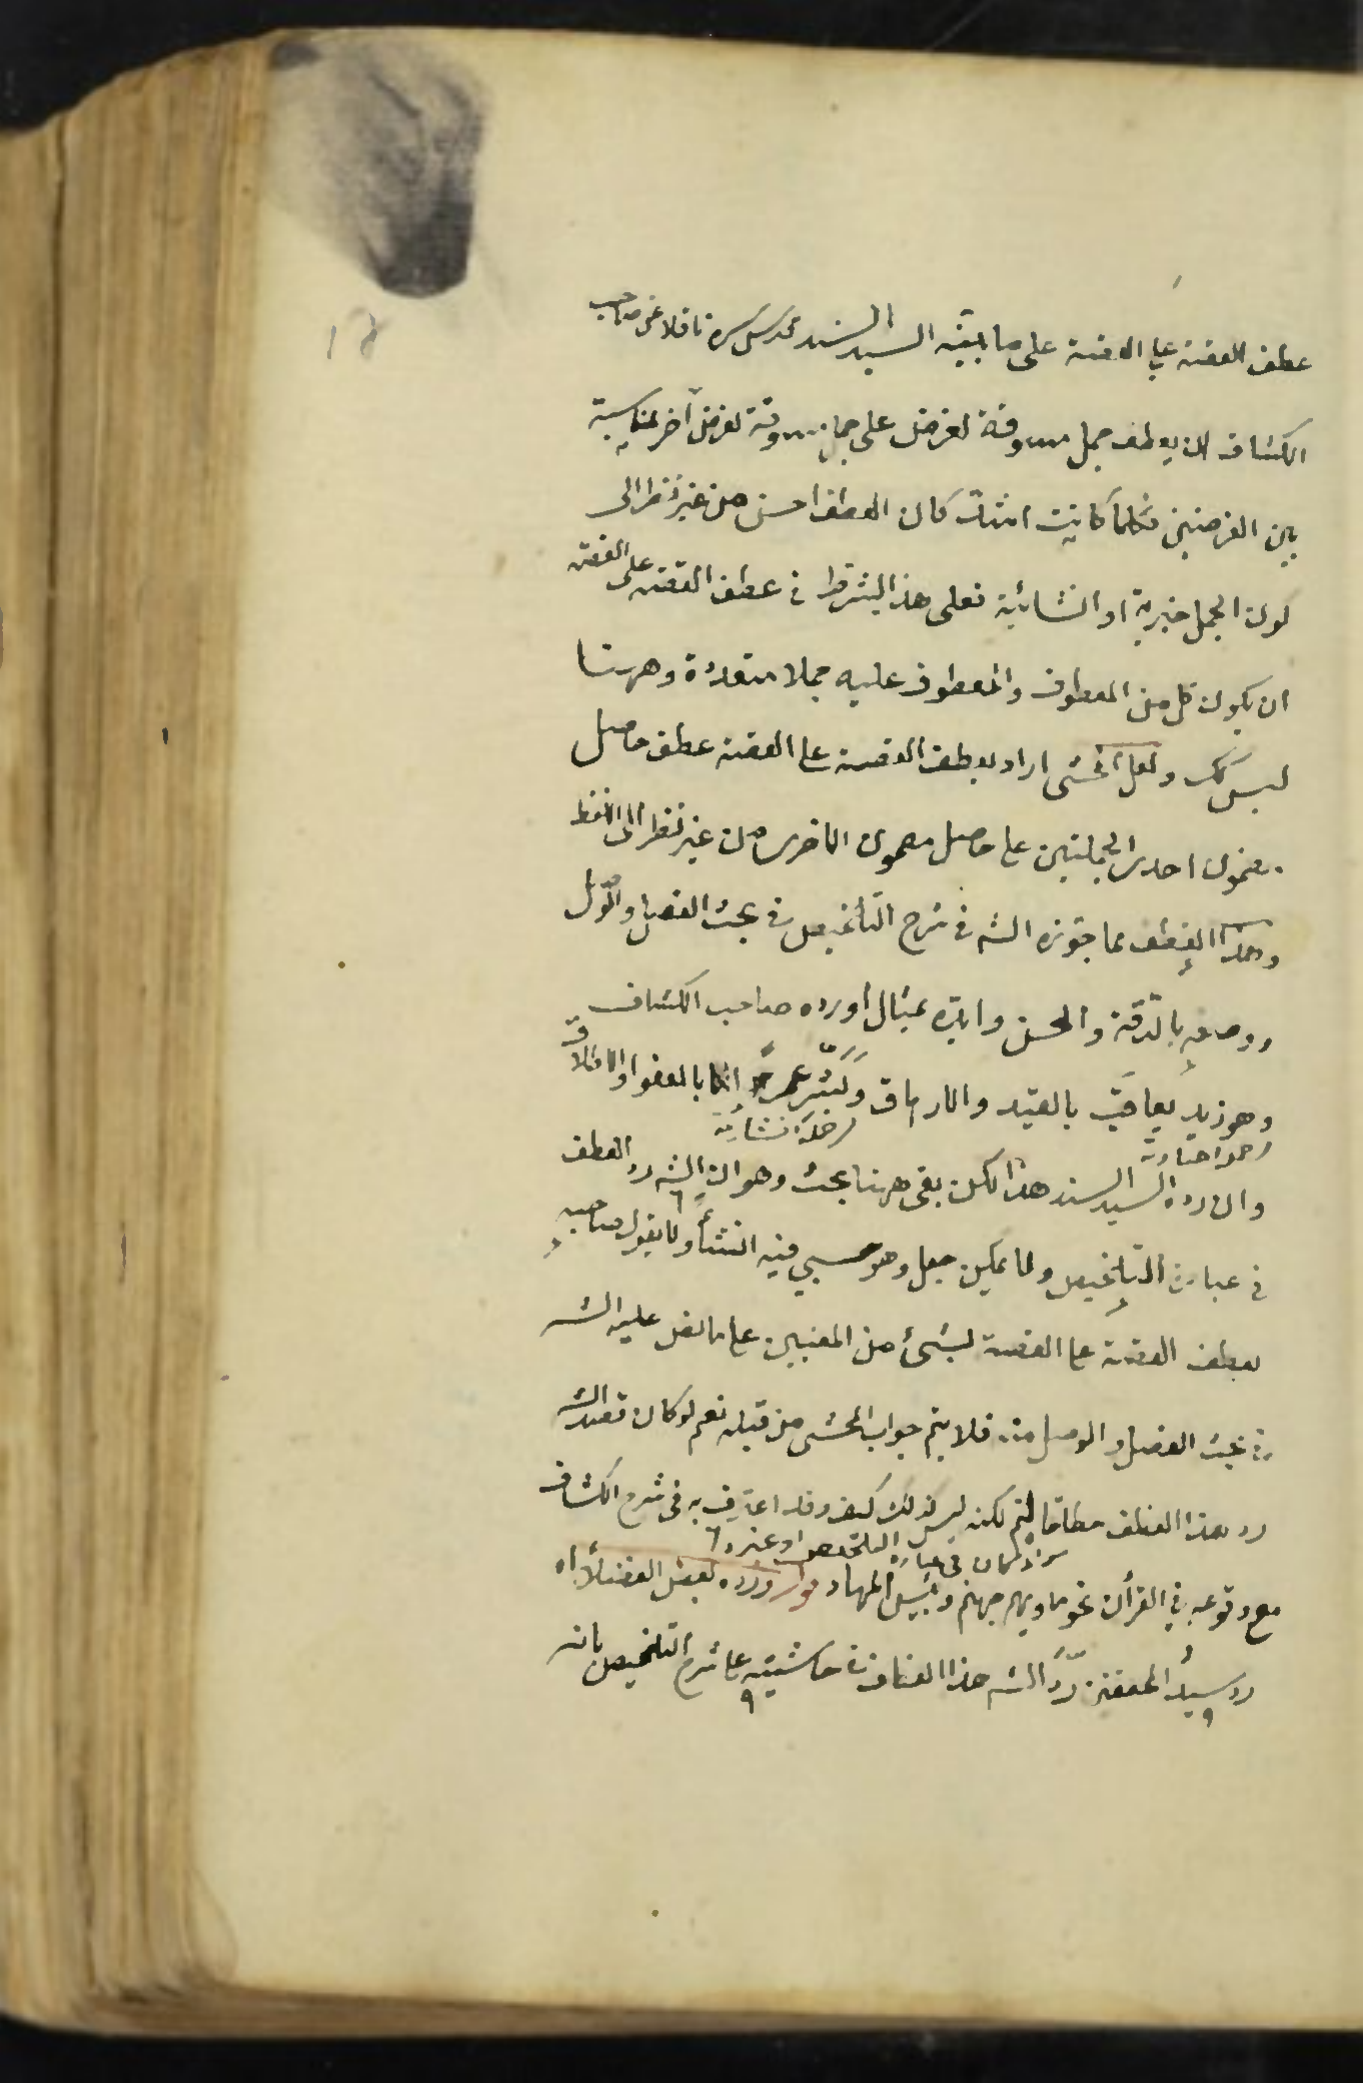 عطف القصة على القصة على ما بيّنه السيد السند قدس سره ناقلا عن صاحب
الكشاف ان يعطف جمل مسوقة لغرض على جمل مسوقة لغرض آخر لمناسبة
بين الغرضين فكلما كانت اشد كان العطف احسن من غير نظر الى
كون الجمل خبرية او انشائية فعلى هذا يشترط في عطف القصة على القصة
ان يكون كل من المعطوف والمعطوف عليه جملا متعددة وههنا
ليس كك ولعل المحشى اراد بعطف القصة على القصة عطف حاصل
مضمون احدى الجملتين على حاصل مضمون الاخرى من غير نظر الى اللفظ
وهذا العطف مما جوزه الشه في شرح التلخيص في بحث الفصل والوصل
ووصفه بالدقة والحسن وايده بمثال اورده صاحب الكشاف
وهو زيد يعاقب بالقيد والارهاق وبشّر عمرا بالعفو والاطلاق
جملة انشائية
وان رده السيد السند هذا لكن بقى ههنا بحث وهو ان الشه رد العطف
في عبارة التلخيص ولما يمكن جعل وهو حسبي فيه انشاء ولا يقول صاحبه
بعطف القصة على القصة بشىء من المعنيين على ما نص عليه الشه
في بحث الفصل والوصل منه فلا يتم جواب المحشى من قبله نعم لو كان قصد الشه
رد هذا العطف مطلقا لتم لكنه ليس كذلك كيف وقد اعترف به في شرح الكشاف
سواء كان في عبارة التلخيص او غيره
مع وقوعه في القرآن نحو مأويهم جهنم وبئس المهاد قوله ورده بعض الفضلاء اه
رد سيد المحققين ردّ الشه هذا العطف في حاشيته على شرح التلخيص بانه